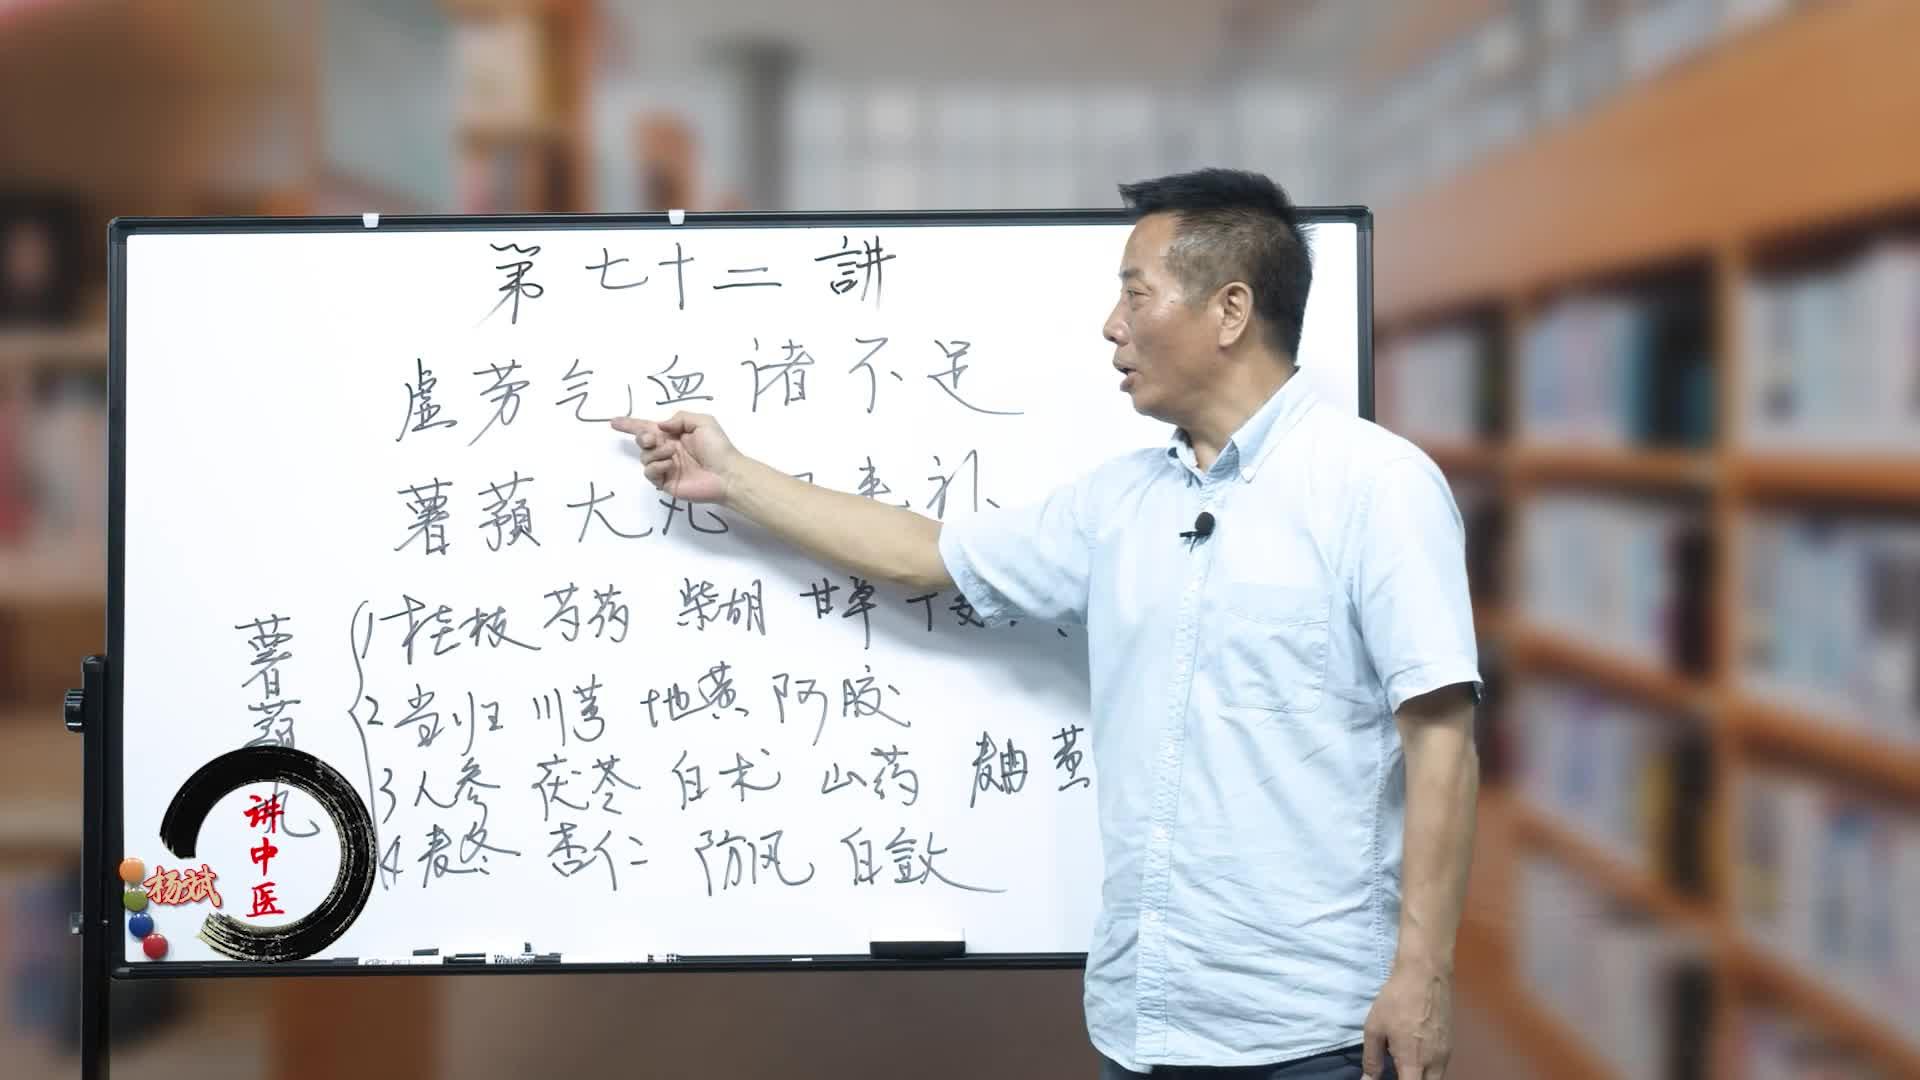 第七十二講
虚劳气血诸不足
薯蕷大丸 补
薯蕷丸
1 桂枝 芍药 柴胡 甘草
2 当归 川芎 地黄 阿胶
3 人参 茯苓 白术 山药 麯 黄
4 麦冬 杏仁 防风 白蔹
讲中医
杨斌
Whiteboard